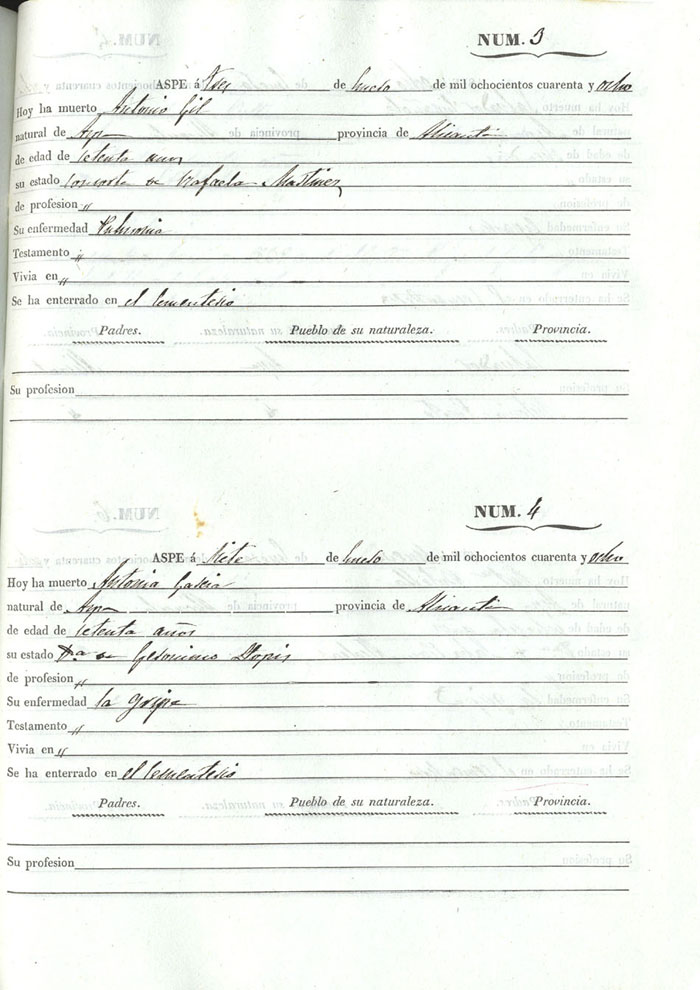 NUM. 3
ASPE á Tres de Enero de mil ochocientos cuarenta y ocho
Hoy ha muerto Antonio Gil
natural de Aspe provincia de Alicante
de edad de setenta años
su estado consorte de Rafaela Martinez
de profesion „
Su enfermedad Pulmonia
Testamento „
Vivia en „
Se ha enterrado en el Cementerio
Padres. Pueblo de su naturaleza. Provincia.
Su profesion
NUM. 4
ASPE á Siete de Enero de mil ochocientos cuarenta y ocho
Hoy ha muerto Antonia Garcia
natural de Aspe provincia de Alicante
de edad de setenta años
su estado de Geronimo Llopis
de profesion „
Su enfermedad la gripe
Testamento „
Vivia en „
Se ha enterrado en el Cementerio
Padres. Pueblo de su naturaleza. Provincia.
Su profesion